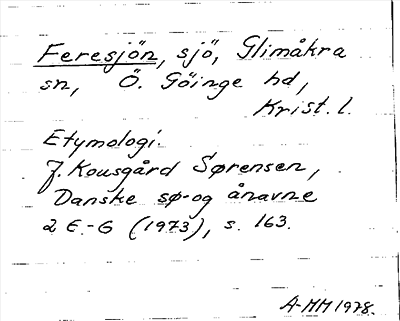 Feresjön, sjö, Glimåkra
sn, Ö. Göinge hd,
Krist. l.
Etymologi.
J. Kousgård Sørensen,
Danske sø- og ånavne
2 E.-G (1973), s. 163.
A-MM 1978.